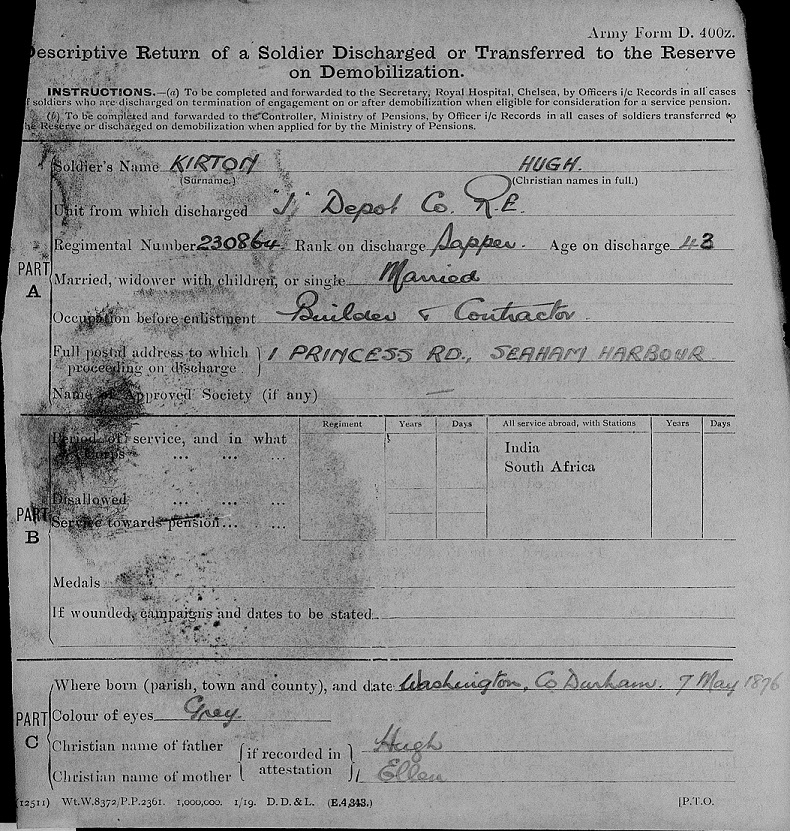 Army Form D. 400z.
Descriptive Return of a Soldier Discharged or Transferred to the Reserve
on Demobilization.
INSTRUCTIONS.—(a) To be completed and forwarded to the Secretary, Royal Hospital, Chelsea, by Officers i/c Records in all cases
of soldiers who are discharged on termination of engagement on or after demobilization when eligible for consideration for a service pension.
(b) To be completed and forwarded to the Controller, Ministry of Pensions, by Officer i/c Records in all cases of soldiers transferred to
the Reserve or discharged on demobilization when applied for by the Ministry of Pensions.
PART A
Soldier's Name KIRTON HUGH.
(Surname.) (Christian names in full.)
Unit from which discharged "J" Depot Co. R.E.
Regimental Number 230864. Rank on discharge Sapper. Age on discharge 43
Married, widower with children, or single Married
Occupation before enlistment Builder & Contractor.
Full postal address to which 1 PRINCESS RD., SEAHAM HARBOUR
proceeding on discharge
Name of Approved Society (if any) —
PART B
Regiment Years Days All service abroad, with Stations Years Days
Period of service, and in what
Corps ... ... ...
India
South Africa
Disallowed ... ... ...
Service towards pension... ...
Medals
If wounded, campaigns and dates to be stated
PART C
Where born (parish, town and county), and date Washington, Co Durham. 7 May 1876
Colour of eyes Grey.
Christian name of father if recorded in Hugh
Christian name of mother attestation Ellen
(12511) Wt.W.8372/P.P.2361. 1,000,000. 1/19. D.D.&L. (E.4,343.) [P.T.O.